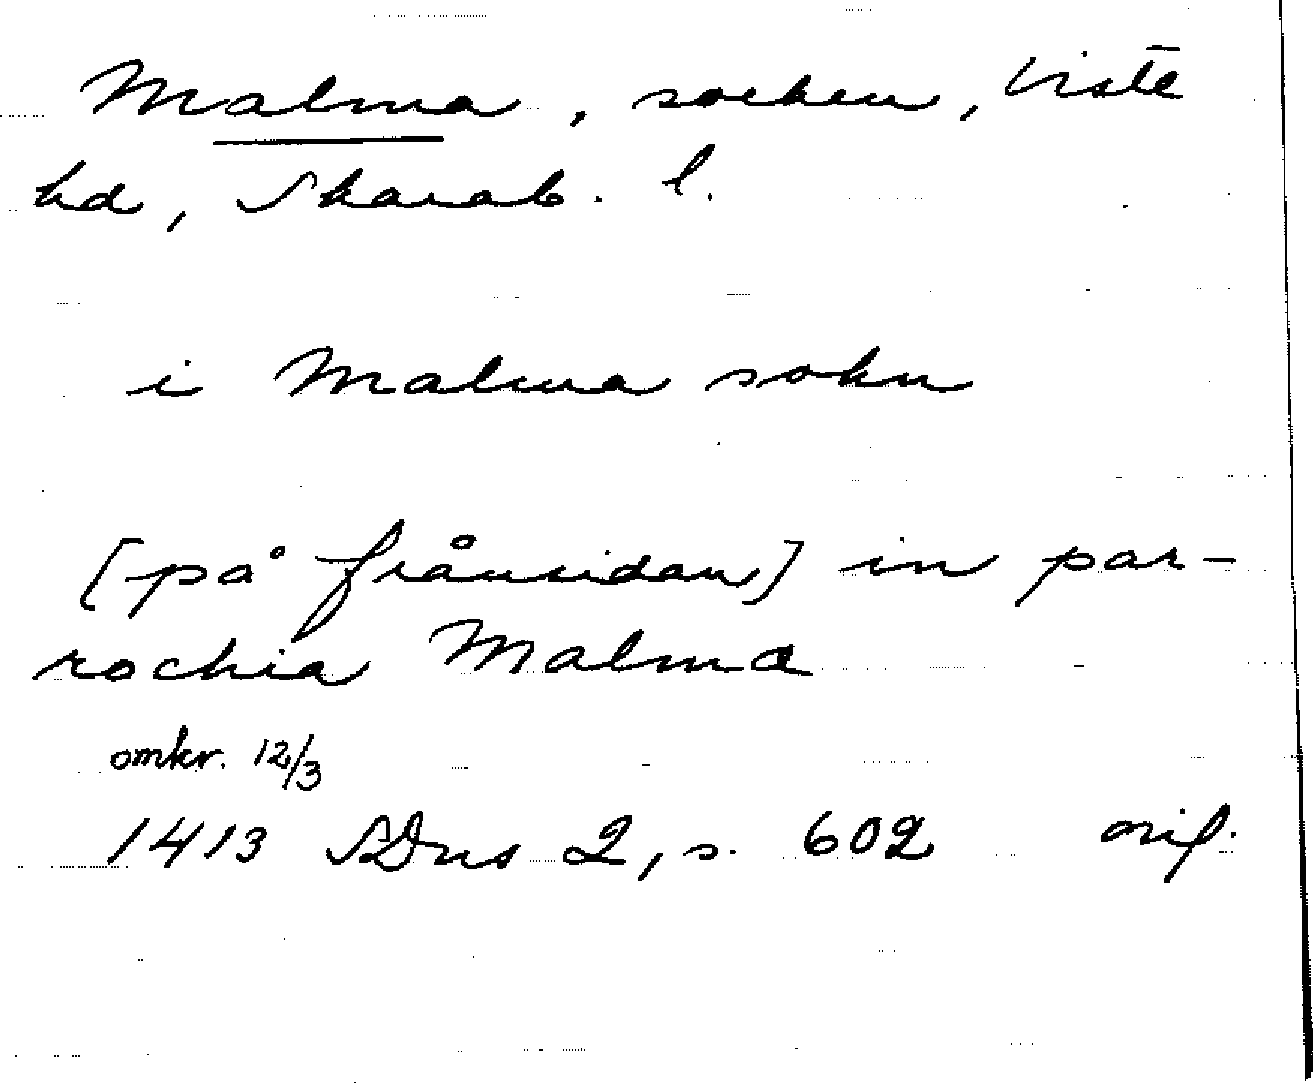 Malma, socken, Viste
hd, Skarab. l.
i Malma sokn
[på frånsidan] in par-
rochia Malma
omkr. 12/3
1413 SDns 2, s. 602 orig.